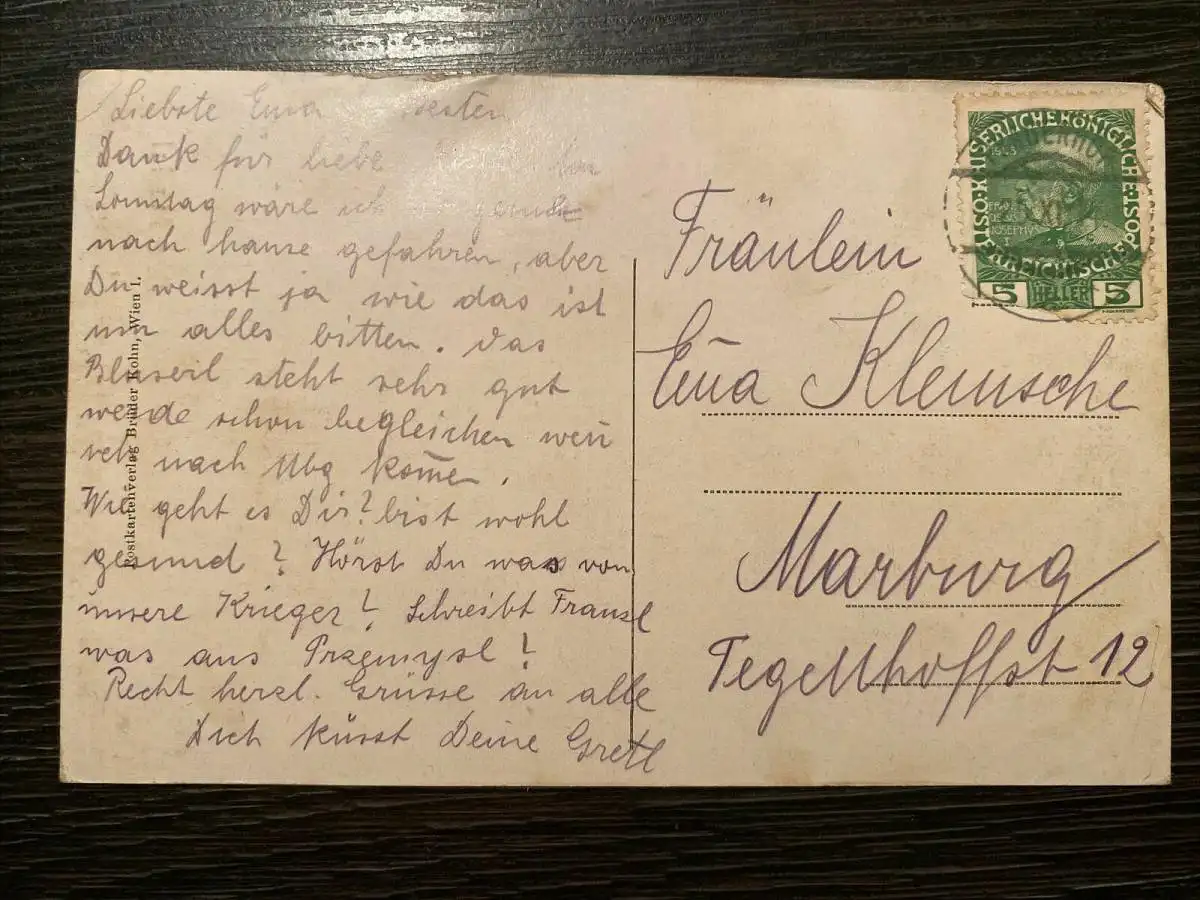 Liebste Ema besten
Dank für liebe
Sonntag wäre ich gerne
nach hause gefahren, aber
Du weisst ja wie das ist
um alles bitten. das
steht sehr gut
werde schon begleichen wen̄
nach Mbg kom̄en.
Wie geht es Dir? bist wohl
gesund? Hörst Du was von
unsere Krieger? Schreibt Franzl
was aus Przemysl?
Recht herzl. Grüsse an alle
Dich küsst Deine Gretl
Postkartenverlag Brüder Kohn, Wien I.
KAISERLICHE KÖNIGLICHE ÖSTERREICHISCHE POST
5 HELLER 5
Fräulein
Ema Klemsche
Marburg
Tegetthoffst 12